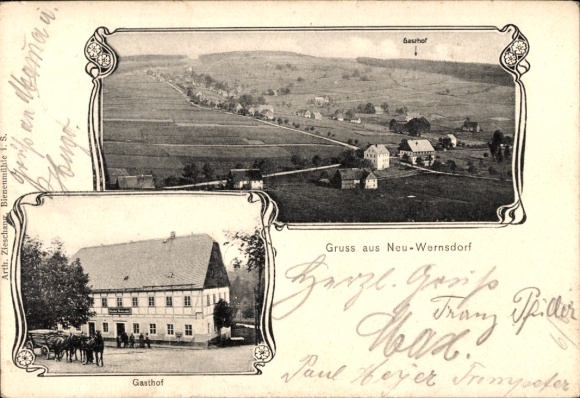 Gasthof
Gruß an Mama u.
Hugo
Arth. Zieschang, Bienenmühle i. S.
Gruss aus Neu-Wernsdorf
Herzl. Gruß
Franz
Max.
Paul Meyer Trompeter
Gasthof